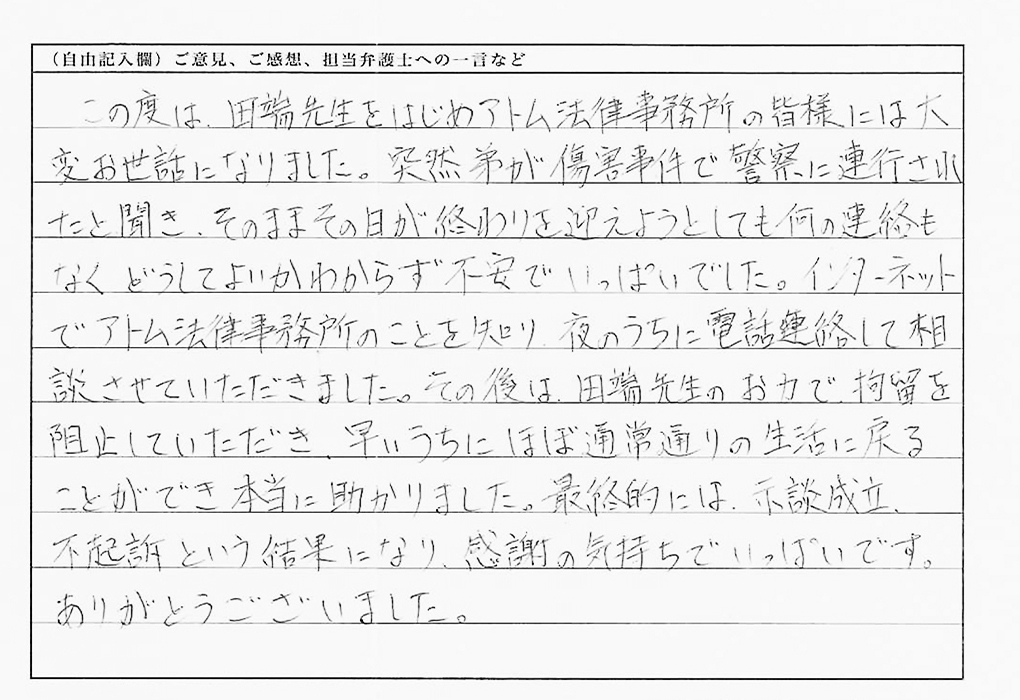 （自由記入欄）ご意見、ご感想、担当弁護士への一言など
この度は、田端先生をはじめアトム法律事務所の皆様には大
変お世話になりました。突然弟が傷害事件で警察に連行され
たと聞き、そのままその日が終わりを迎えようとしても何の連絡も
なくどうしてよいかわからず不安でいっぱいでした。インターネット
でアトム法律事務所のことを知り、夜のうちに電話連絡して相
談させていただきました。その後は、田端先生のお力で、拘留を
阻止していただき、早いうちにほぼ通常通りの生活に戻る
ことができ本当に助かりました。最終的には、示談成立、
不起訴という結果になり、感謝の気持ちでいっぱいです。
ありがとうございました。